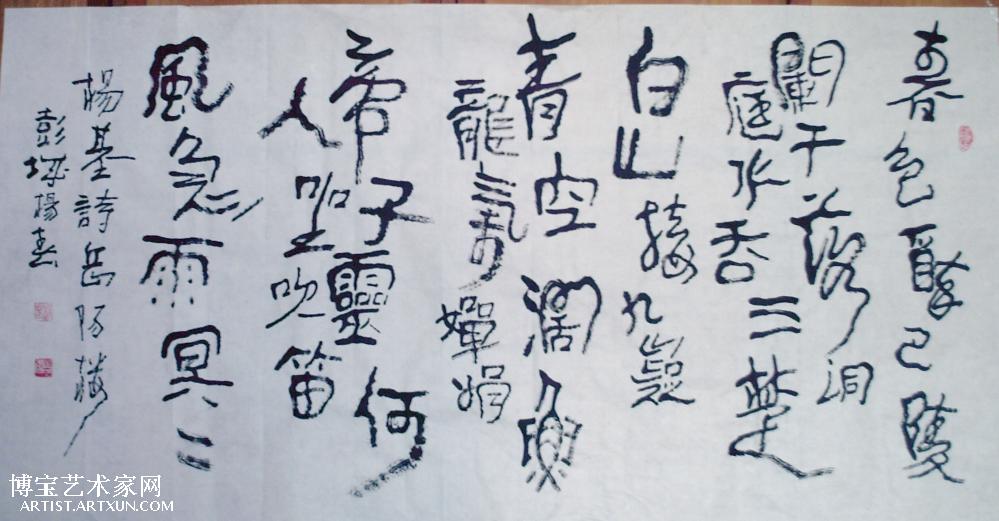 春色醉巴陵
闌干落洞
庭水吞三楚
白山接九嶷
青空濶魚
龍氣嬋娟
帝子靈何
人坐吹笛
風急雨冥〻
楊基詩岳陽樓
彭楊
博宝艺术家网
ARTIST.ARTXUN.COM